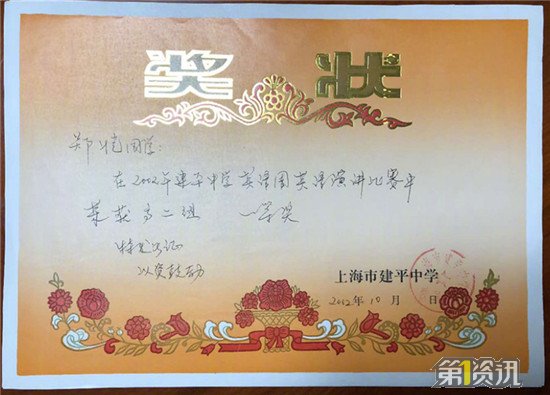 奖 状
郑恺同学：
在2002年建平中学英语周英语演讲比赛中
荣获高二组 一等奖
特发此证
以资鼓励
上海市建平中学
2002年10月 日
第1资讯